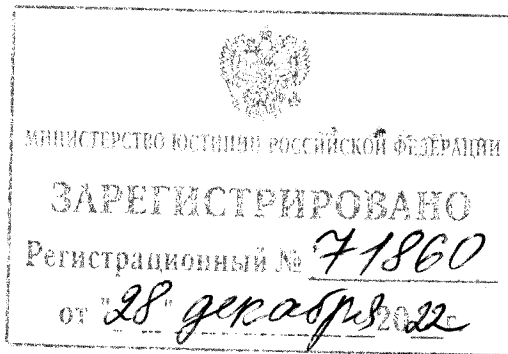 МИНИСТЕРСТВО ЮСТИЦИИ РОССИЙСКОЙ ФЕДЕРАЦИИ
ЗАРЕГИСТРИРОВАНО
Регистрационный № 71860
от "28" декабря 2022 г.